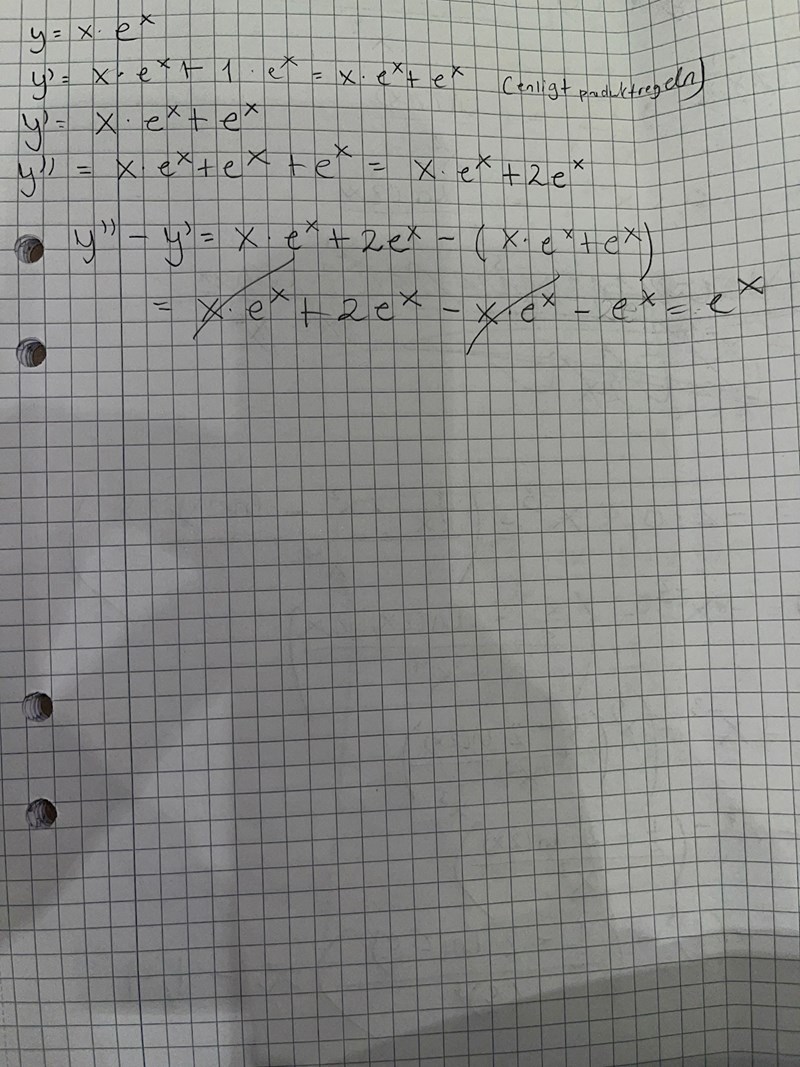 y = x · eˣ
y' = x · eˣ + 1 · eˣ = x · eˣ + eˣ (enligt produktregeln)
y' = x · eˣ + eˣ
y'' = x · eˣ + eˣ + eˣ = x · eˣ + 2eˣ
y'' - y' = x · eˣ + 2eˣ - (x · eˣ + eˣ)
= x · eˣ + 2eˣ - x · eˣ - eˣ = eˣ